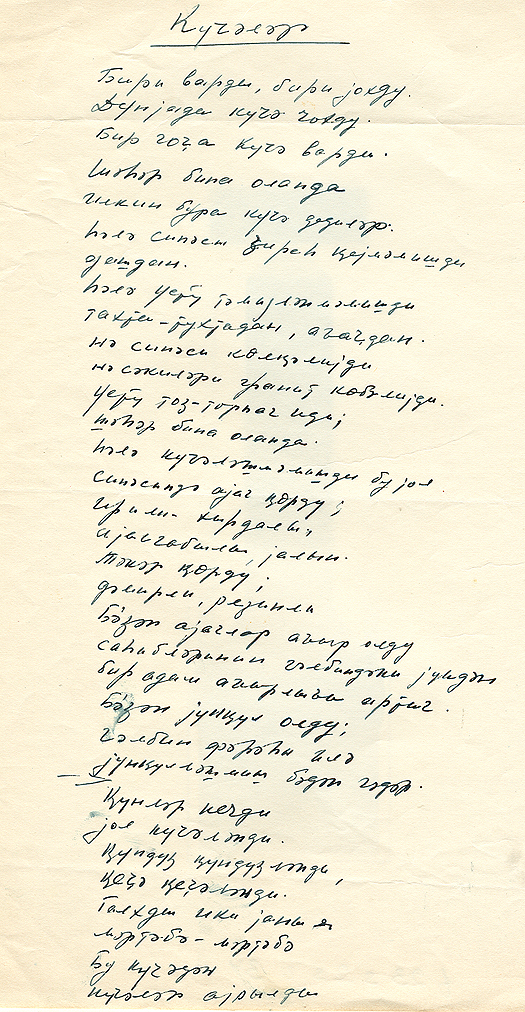 Күчәләр
Бири варды, бири јохду.
Дүнјада күчә чохду.
Бир гоҹа күчә варды.
Шәһәр бина оланда
илкин бура күчә дедиләр.
Һәлә синәси зиреһ ҝејмәмишди
дашдан.
Һәлә үстү тәмизләнмәмишди
тахта-тухтадан, ағаҹдан.
Нә синәси көлҝәлијди
нә сәкиләри гранит көбәлијди.
Үстү тоз-торпағ иди;
шәһәр бина оланда.
Һәлә күчәләшмәмишди бу јол.
Синәсиндә ајаг ҝөрдү;
ирили-хырдалы,
ајаггабылы, јалын.
Тәкәр ҝөрдү;
дәмирли, резинли
Бә'зән ајаглар ағыр олду
саһибләринин гәлбиндәки јүкдән
бир адам ағырлығы артыг.
Бә'зән јүнҝүл олду;
гәлбин фәрәһи илә
јүнҝүлләшмиш бәдән гәдәр.
Ҝүнләр кечди
јол күчәләнди.
Ҝүндүз ҝүндүзләнди,
ҝеҹә ҝеҹәләнди.
Галхды ики јаны
мәртәбә-мәртәбә
Бу күчәдән
күчәләр ајрылды